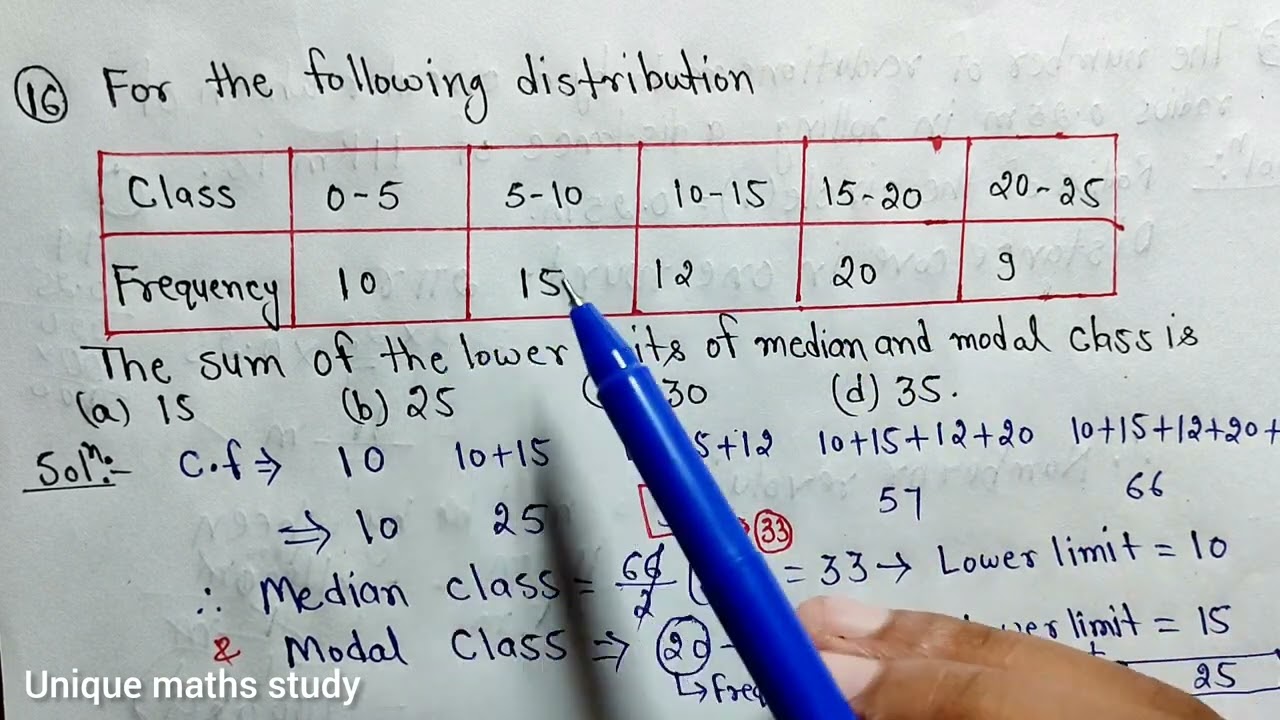 16 For the following distribution
Class 0-5 5-10 10-15 15-20 20-25
Frequency 10 15 12 20 9
The sum of the lower of median and modal class is
(a) 15 (b) 25 30 (d) 35.
Solⁿ:- C.f ⇒ 10 10+15 5+12 10+15+12+20 10+15+12+20+
⇒ 10 25 33 57 66
∴ Median class = 66/2 = 33 → Lower limit = 10
& Modal Class ⇒ 20 limit = 15
25
Unique maths study